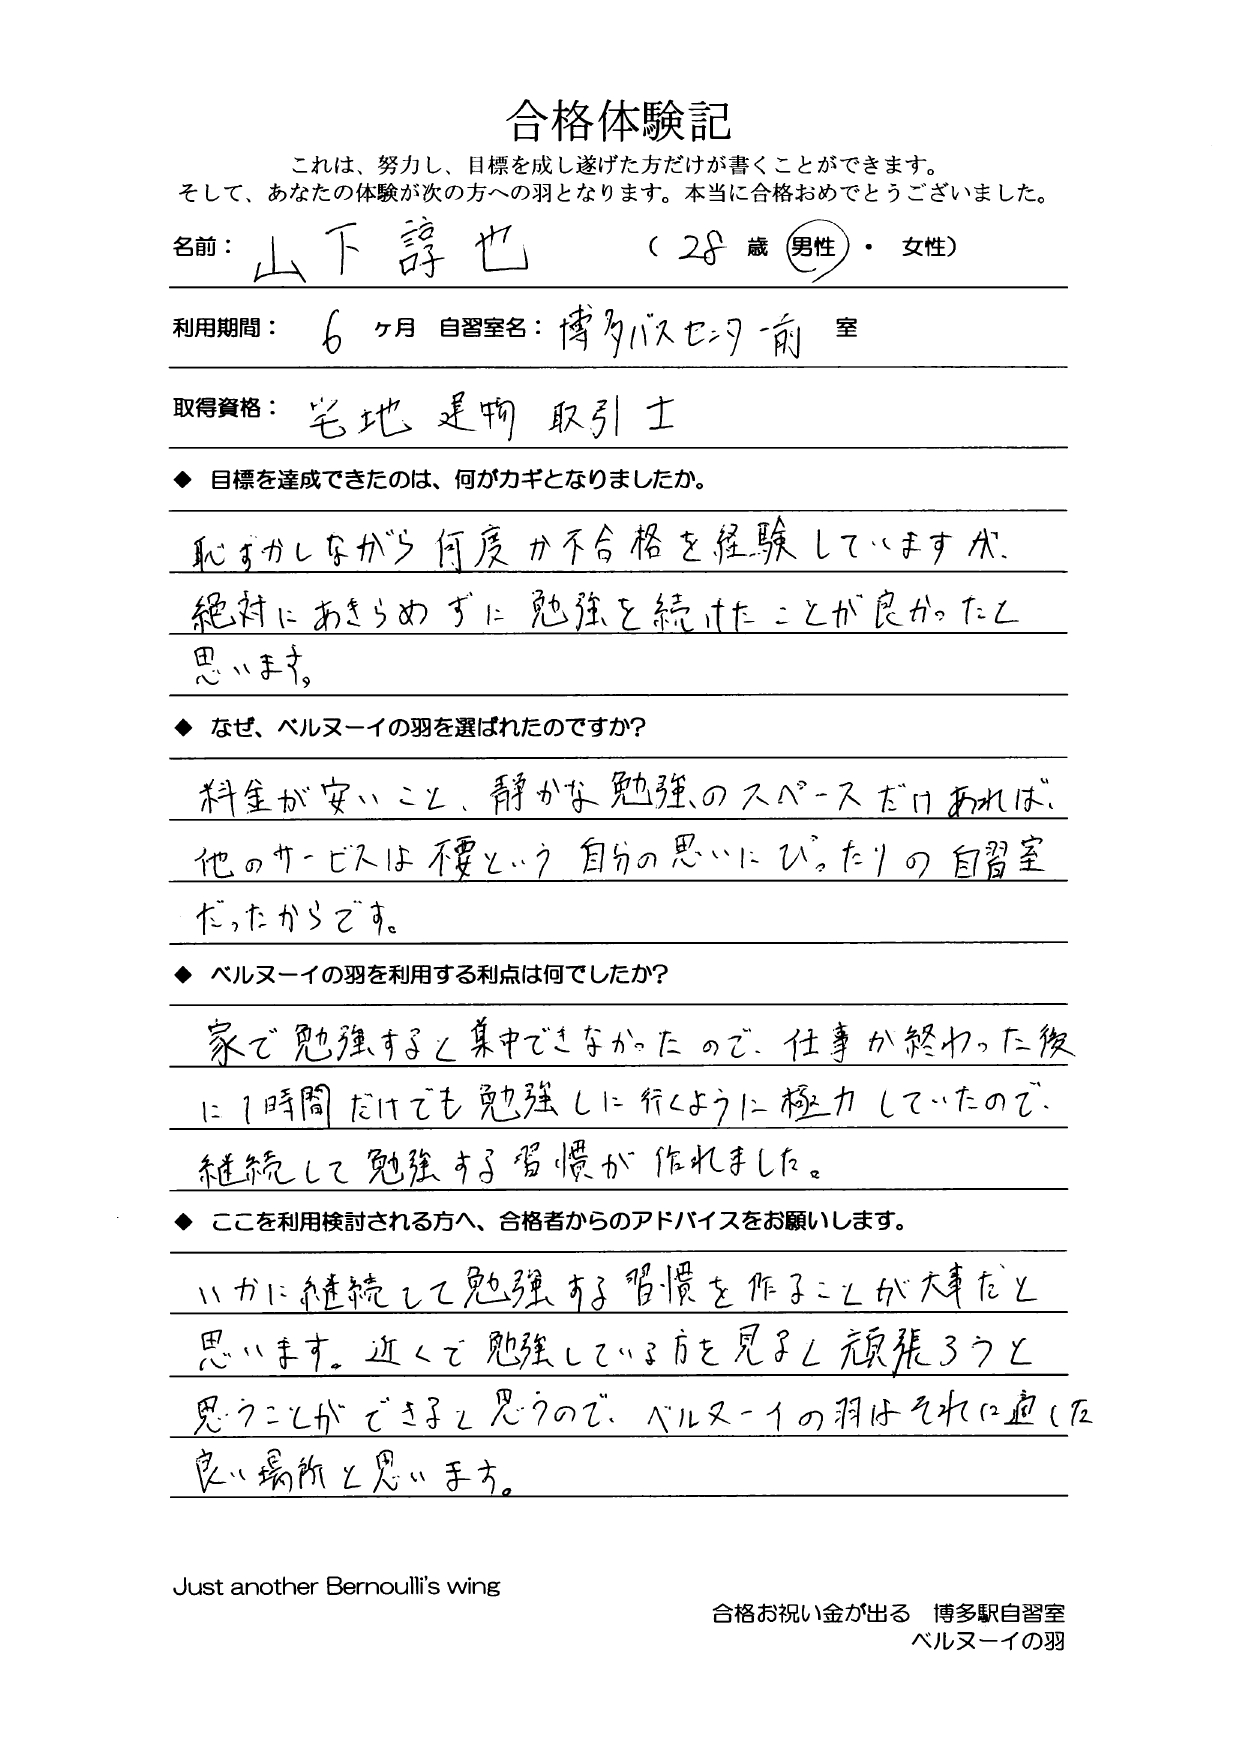 合格体験記
これは、努力し、目標を成し遂げた方だけが書くことができます。
そして、あなたの体験が次の方への羽となります。本当に合格おめでとうございました。
名前： 山下諄也 （ 28 歳 男性 ・ 女性）
利用期間： 6 ヶ月 自習室名： 博多バスセンター前 室
取得資格： 宅地建物取引士
◆ 目標を達成できたのは、何がカギとなりましたか。
恥ずかしながら何度か不合格を経験していますが、
絶対にあきらめずに勉強を続けたことが良かったと
思います。
◆ なぜ、ベルヌーイの羽を選ばれたのですか？
料金が安いこと、静かな勉強のスペースだけあれば、
他のサービスは不要という自分の思いにぴったりの自習室
だったからです。
◆ ベルヌーイの羽を利用する利点は何でしたか？
家で勉強すると集中できなかったので、仕事が終わった後
に1時間だけでも勉強しに行くように極力していたので、
継続して勉強する習慣が作れました。
◆ ここを利用検討される方へ、合格者からのアドバイスをお願いします。
いかに継続して勉強する習慣を作ることが大事だと
思います。近くで勉強している方を見ると頑張ろうと
思うことができると思うので、ベルヌーイの羽はそれに適した
良い場所と思います。
Just another Bernoulli's wing
合格お祝い金が出る 博多駅自習室
ベルヌーイの羽